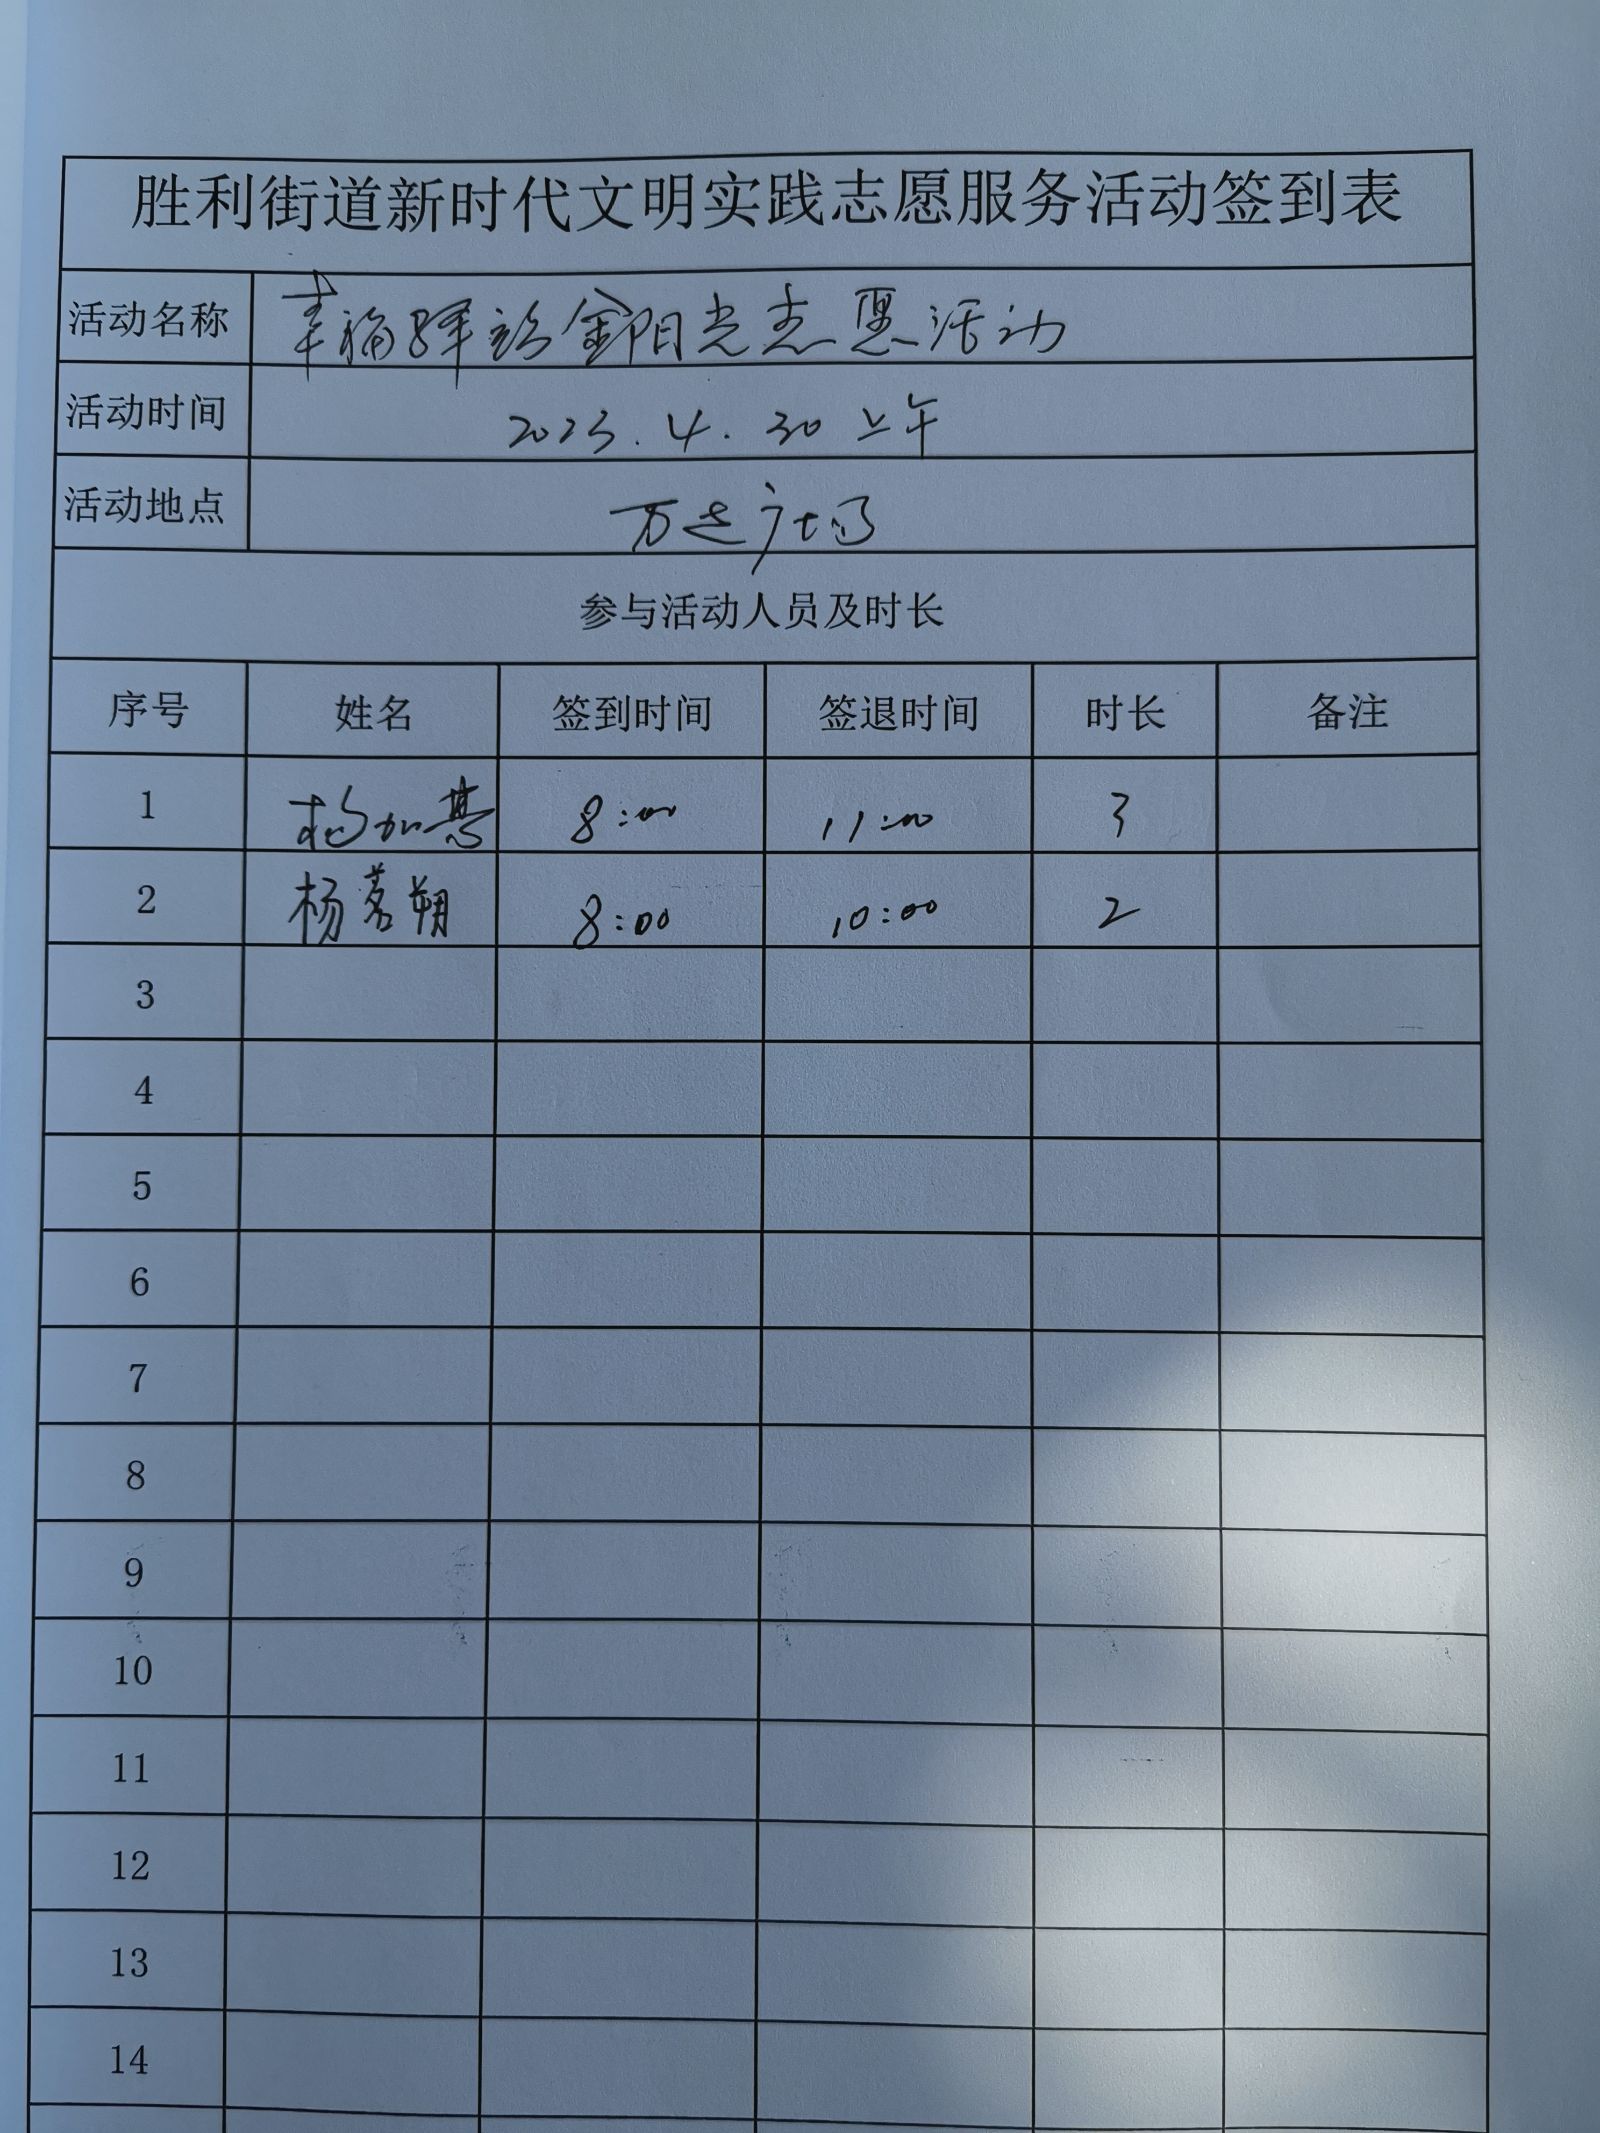 胜利街道新时代文明实践志愿服务活动签到表
活动名称 幸福驿站金阳光志愿活动
活动时间 2023.4.30上午
活动地点 万达广场
参与活动人员及时长
序号 姓名 签到时间 签退时间 时长 备注
1 杨加慧 8:00 11:00 3
2 杨茗朔 8:00 10:00 2
3
4
5
6
7
8
9
10
11
12
13
14